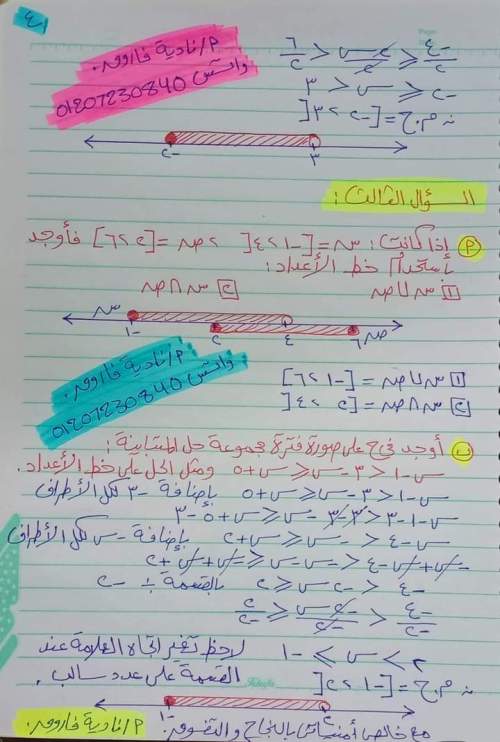 ٤
-٤/٢ ≤ ٢س/٢ < ٦/٢
أ/نادية فاروق.
-٢ ≤ س < ٣
واتس 01207230840
∴ م.ح = [-٢ ، ٣[
-٢ ٣
السؤال الثالث :
أ إذا كانت : س = [-١ ، ٤[ ، ص = [٢ ، ٦] فأوجد
باستخدام خط الأعداد :
١ س ∪ ص ٢ س ∩ ص
س -١ ٢ ٤ ٦ ص
١ س ∪ ص = [-١ ، ٦]
٢ س ∩ ص = [٢ ، ٤[
أ/نادية فاروق.
واتس 01207230840
ب أوجد في ح على صورة فترة مجموعة حل المتباينة :
س - ١ < ٣ - س ≤ س + ٥ ومثل الحل على خط الأعداد.
س - ١ < ٣ - س ≤ س + ٥ بإضافة -٣ لكل الأطراف
س - ١ - ٣ < ٣ - ٣ - س ≤ س + ٥ - ٣
س - ٤ < - س ≤ س + ٢ بإضافة - س لكل الأطراف
-س + س - ٤ < - س - س ≤ -س + س + ٢
-٤ < -٢س ≤ ٢ بالقسمة ÷ -٢
-٤/-٢ > -٢س/-٢ ≥ ٢/-٢
٢ > س ≥ -١ لاحظ تغير اتجاه العلامة عند
∴ م.ح = [-١ ، ٢[ القسمة على عدد سالب.
-١ ٢
مع خالص أمنياتي بالنجاح والتفوق. أ/نادية فاروق.